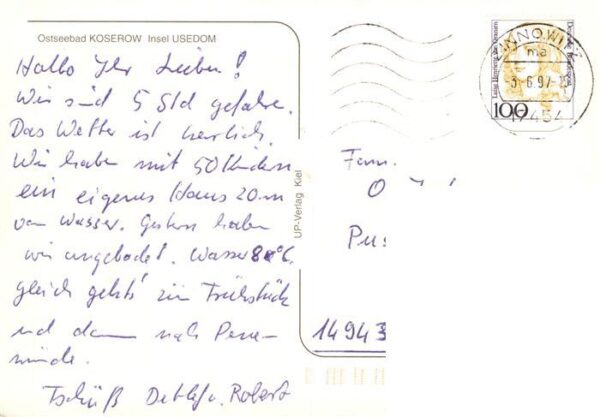 Ostseebad KOSEROW Insel USEDOM
Hallo Ihr Lieben!
Wir sind 5 Std gefahren.
Das Wetter ist herrlich.
Wir haben mit 50 Kindern
ein eigenes Haus 20m
vom Wasser. Gestern haben
wir angebadet. Wasser 8°C.
gleich geht's zum Frühstück
und dann nach Peene-
münde.
Tschüß Detlef u. Robert
UP-Verlag Kiel
ZINNOWITZ
ma
-3.6.97
17454
Deutsche Bundespost
100
Fam.
O
Pus
14943